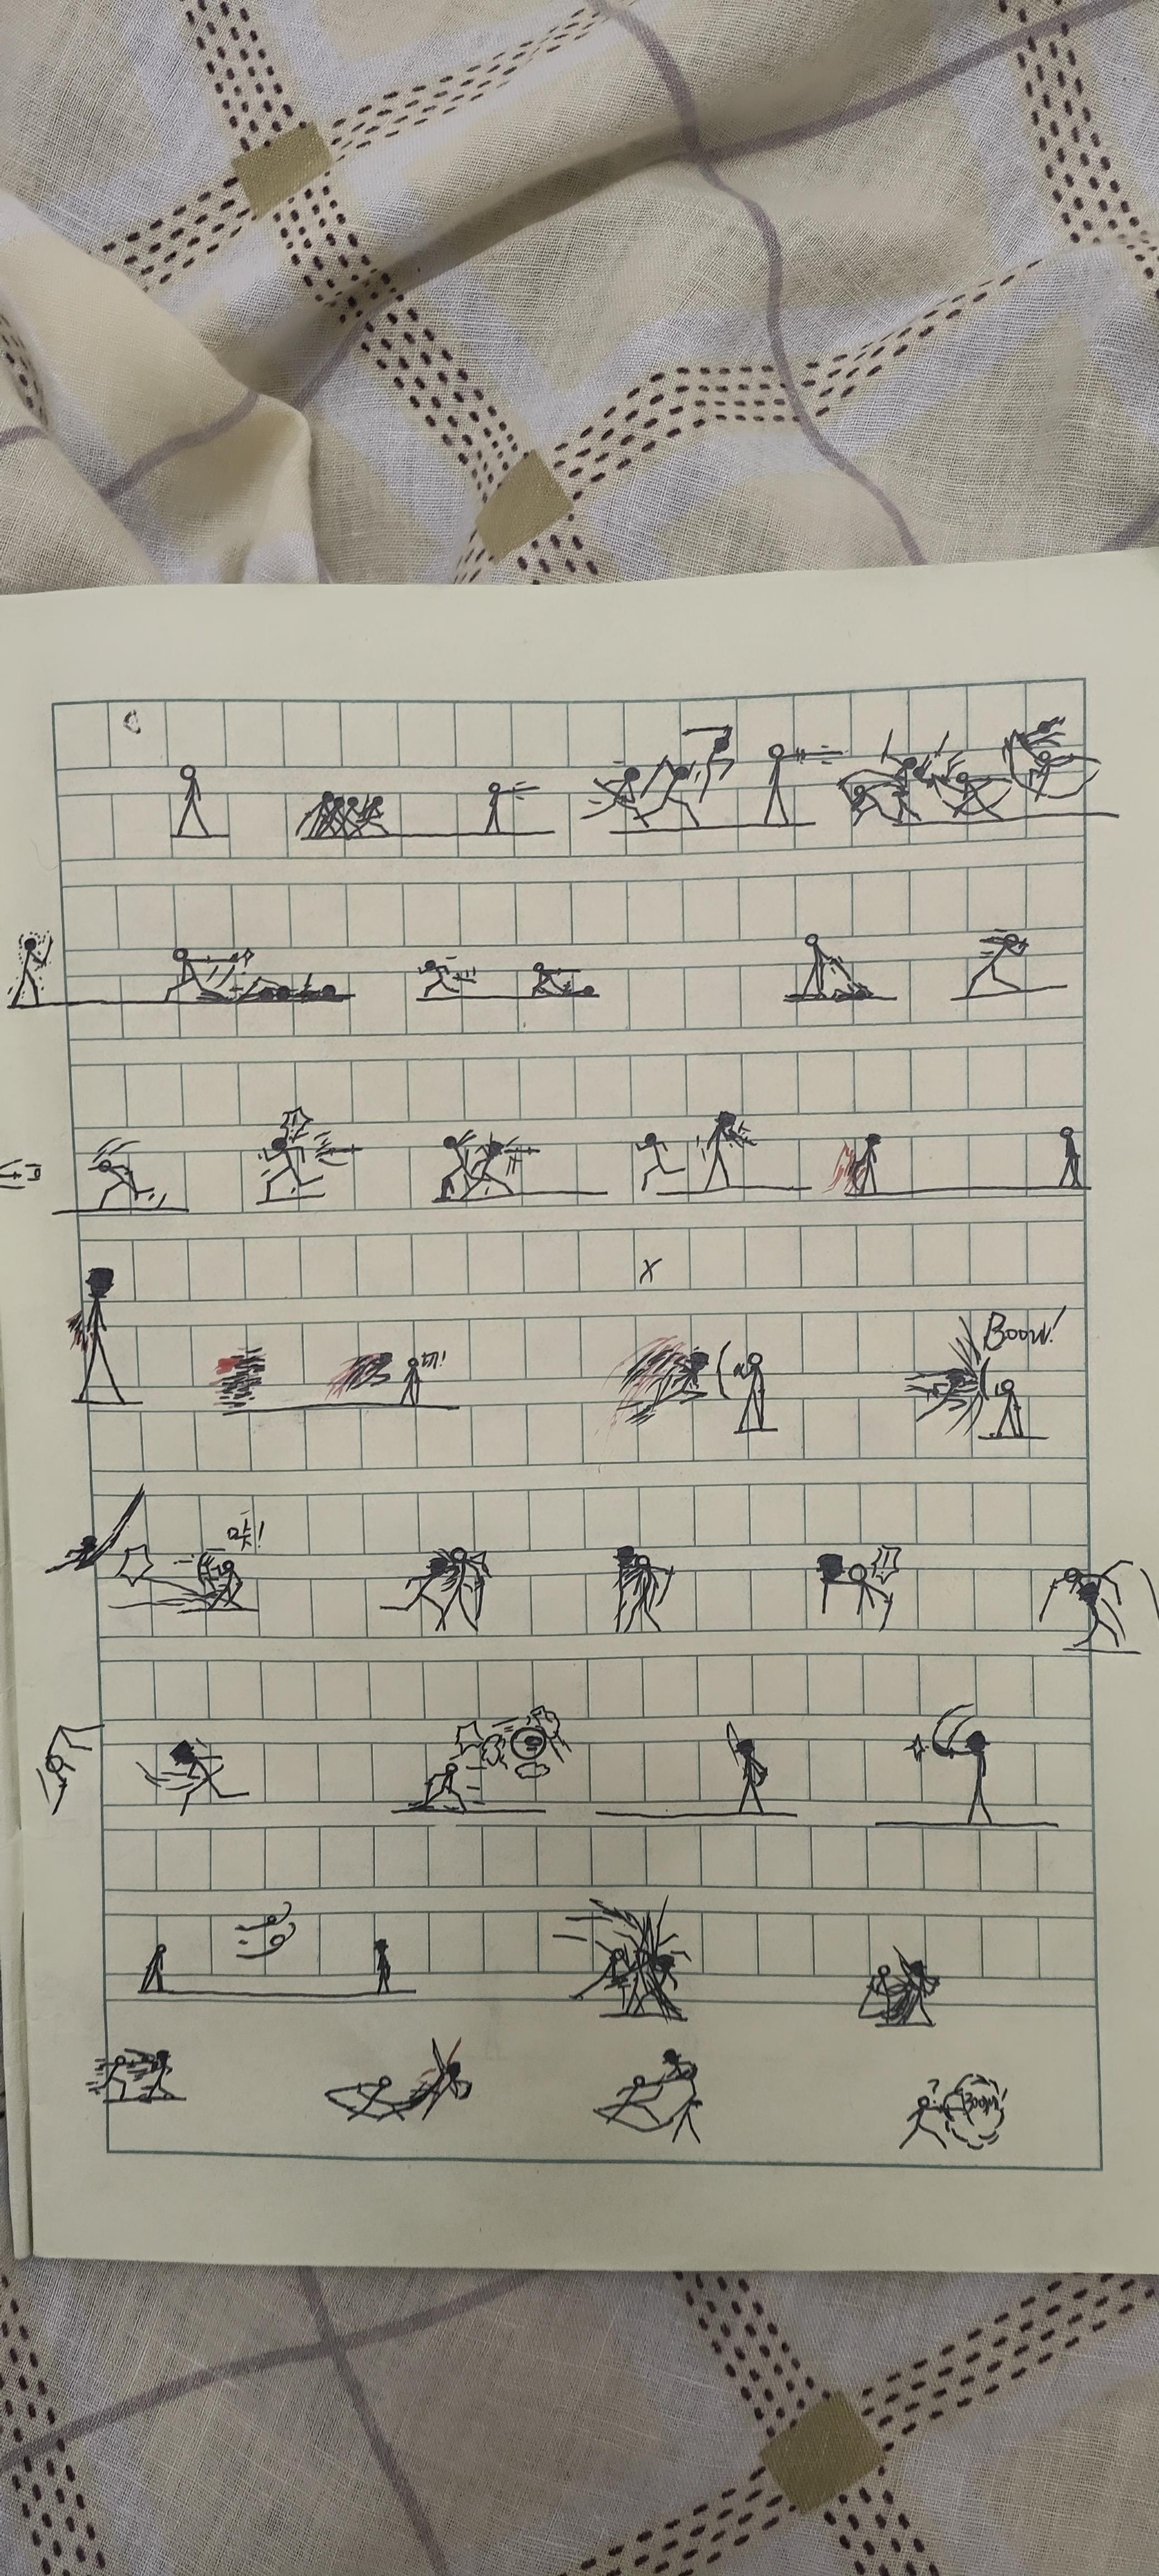 x
切!
Boom!
咔!
!!
?
Boom!